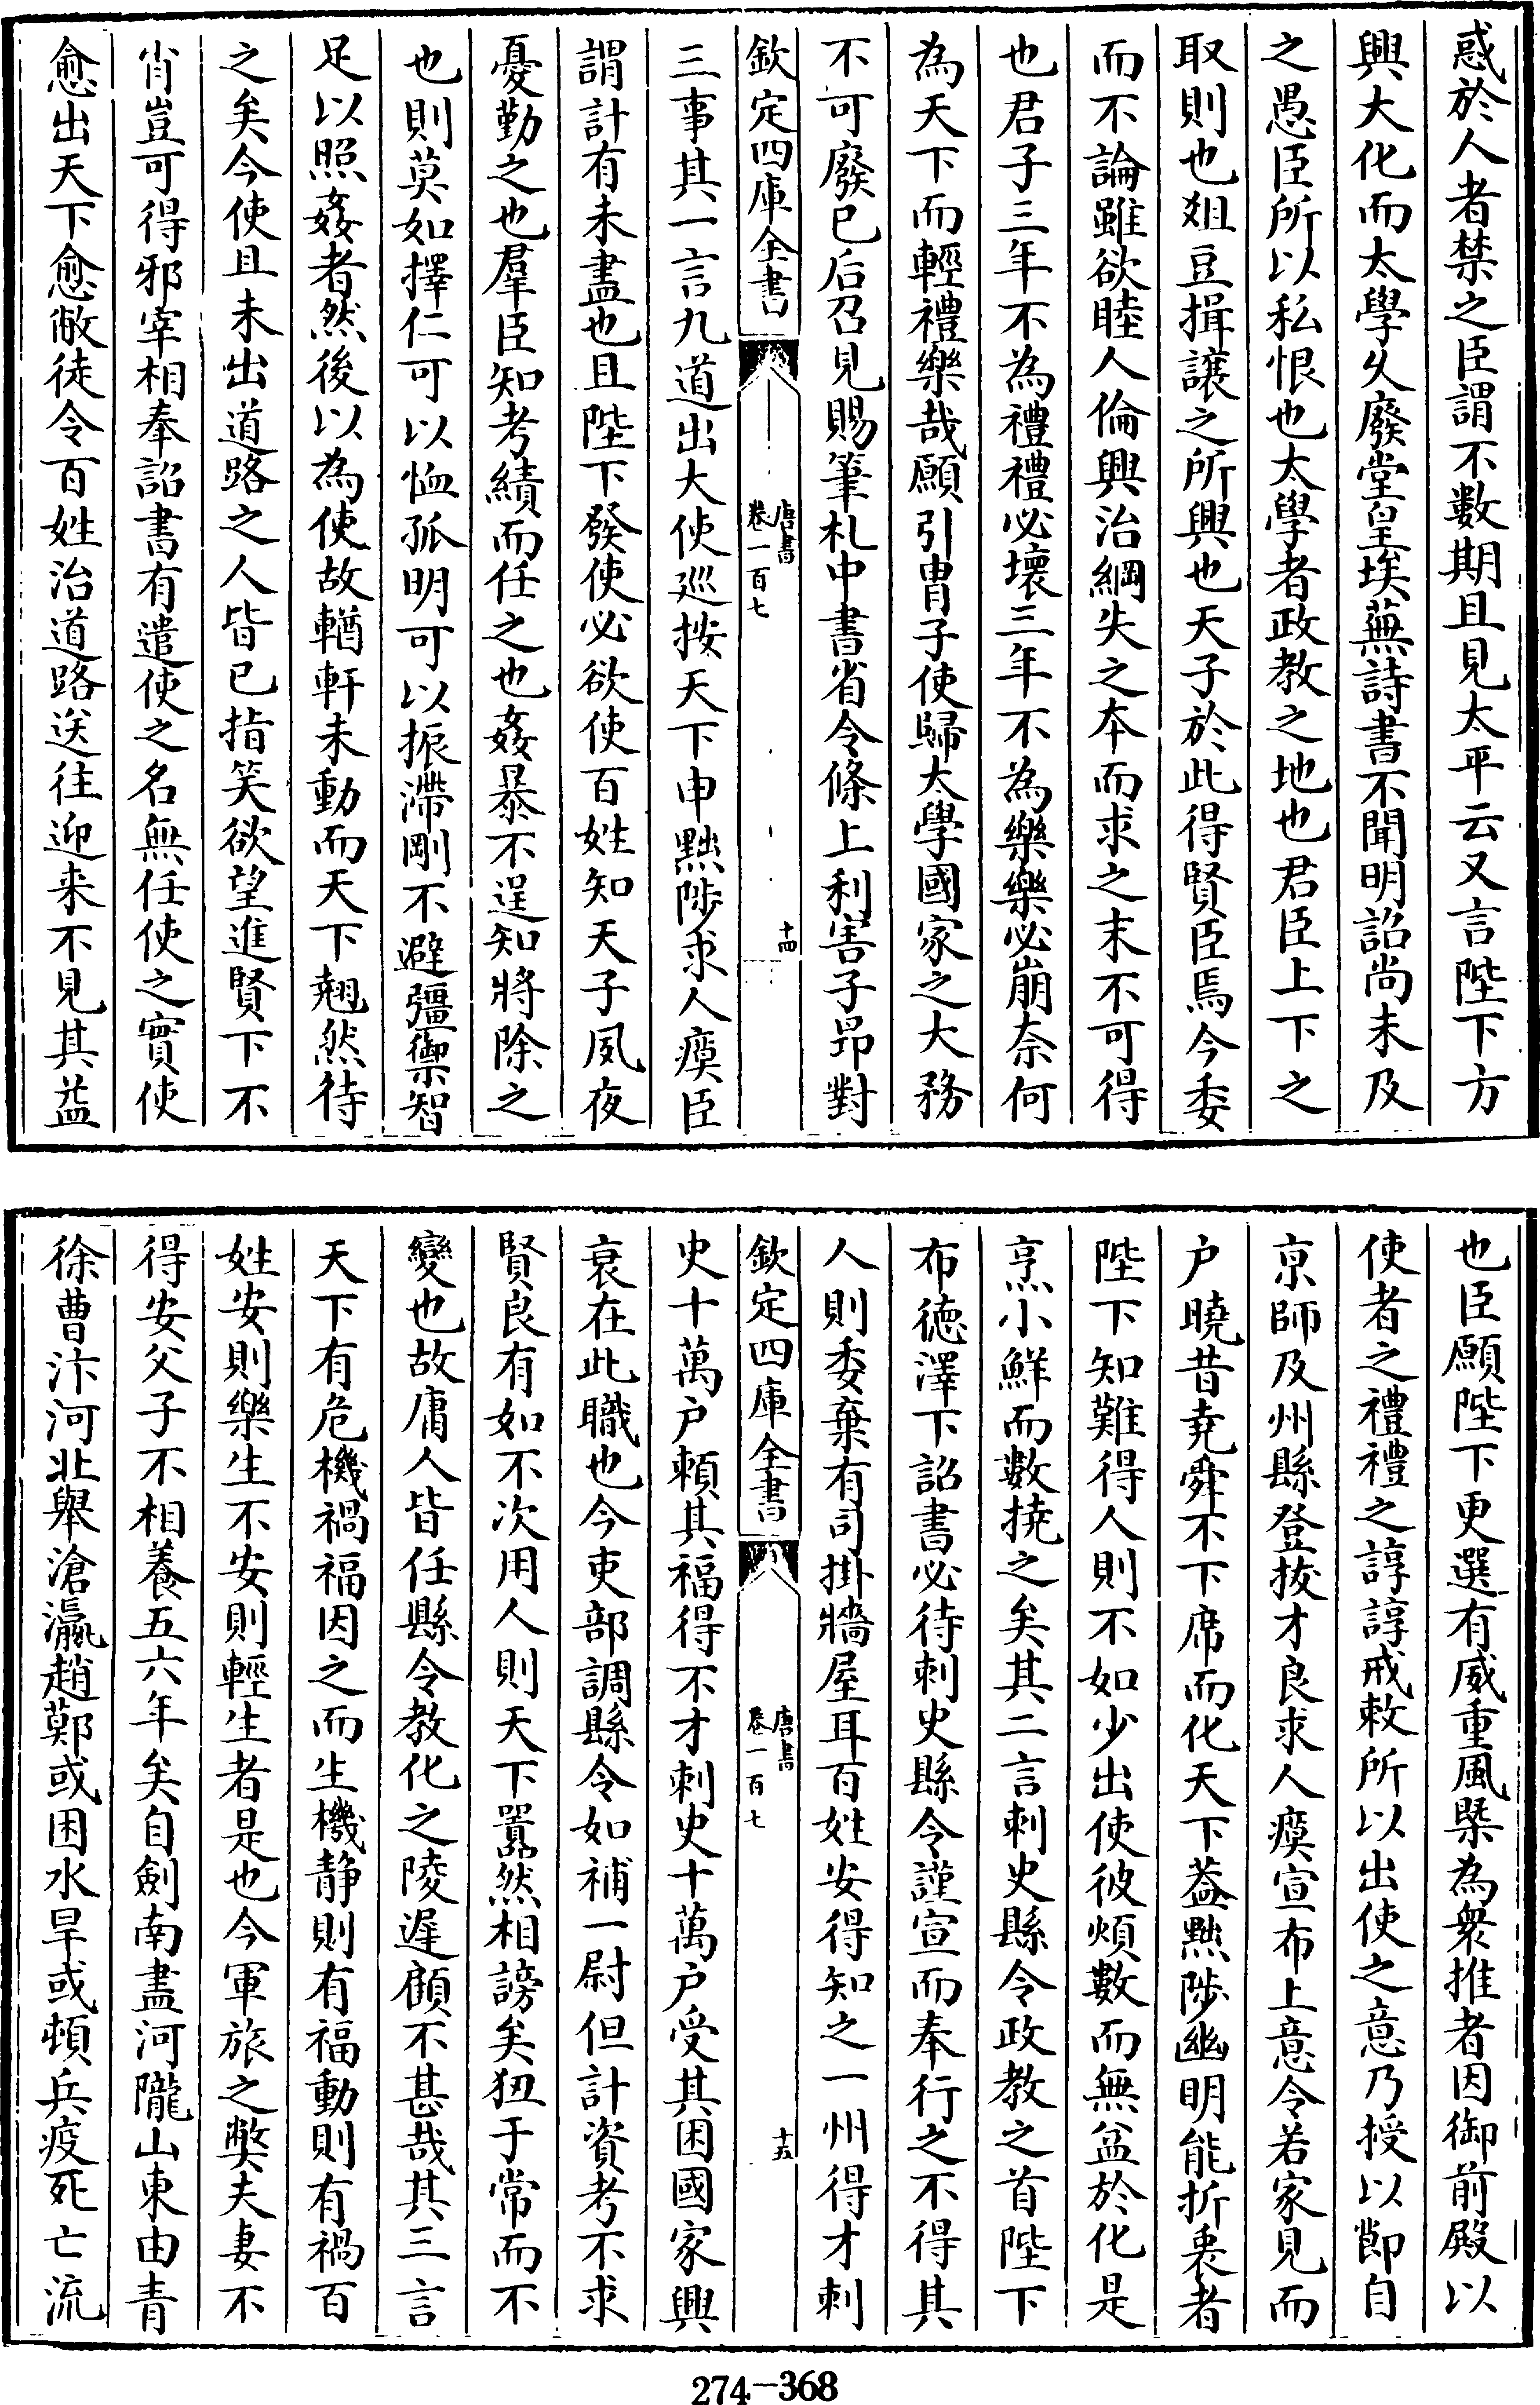 惑於人者禁之臣謂不數期且見太平云又言陛下方
興大化而太學久廢堂皇埃蕪詩書不聞明詔尚未及
之愚臣所以私恨也太學者政教之地也君臣上下之
取則也俎豆揖讓之所興也天子於此得賢臣焉今委
而不論雖欲睦人倫興治綱失之本而求之末不可得
也君子三年不為禮禮必壞三年不為樂樂必崩奈何
為天下而輕禮樂哉願引胄子使歸太學國家之大務
不可廢已后召見賜筆札中書省令條上利害子昂對
欽定四庫全書
唐書
卷一百七
十四
三事其一言九道出大使巡按天下申黜陟求人瘼臣
謂計有未盡也且陛下發使必欲使百姓知天子夙夜
憂勤之也羣臣知考績而任之也姦暴不逞知將除之
也則莫如擇仁可以恤孤明可以振滯剛不避彊禦智
足以照姦者然後以為使故輶軒未動而天下翹然待
之矣今使且未出道路之人皆已指笑欲望進賢下不
肖豈可得邪宰相奉詔書有遣使之名無任使之實使
愈出天下愈敝徒令百姓治道路送往迎来不見其益
也臣願陛下更選有威重風槩為衆推者因御前殿以
使者之禮禮之諄諄戒敕所以出使之意乃授以節自
京師及州縣登拔才良求人瘼宣布上意令若家見而
户曉昔堯舜不下席而化天下葢黜陟幽明能折衷者
陛下知難得人則不如少出使彼煩數而無益於化是
烹小鮮而數撓之矣其二言刺史縣令政教之首陛下
布德澤下詔書必待刺史縣令謹宣而奉行之不得其
人則委棄有司掛牆屋耳百姓安得知之一州得才刺
欽定四庫全書
唐書
卷一百七
十五
史十萬户賴其福得不才刺史十萬户受其困國家興
衰在此職也今吏部調縣令如補一尉但計資考不求
賢良有如不次用人則天下囂然相謗矣狃于常而不
變也故庸人皆任縣令教化之陵遲顧不甚哉其三言
天下有危機禍福因之而生機静則有福動則有禍百
姓安則樂生不安則輕生者是也今軍旅之獘夫妻不
得安父子不相養五六年矣自劍南盡河隴山東由青
徐曹汴河北舉滄瀛趙鄚或困水旱或頓兵疫死亡流
274-368